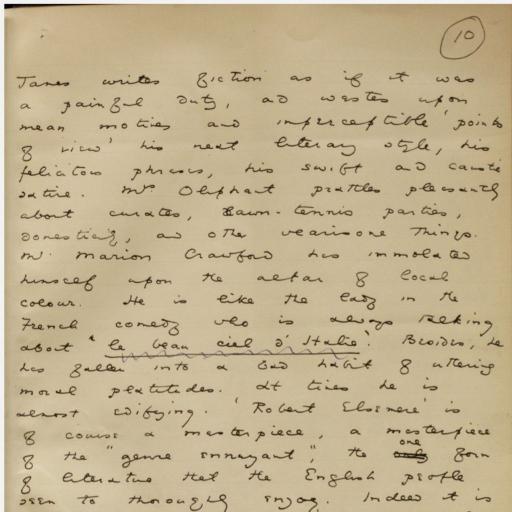 10
James writes fiction as if it was
a painful duty, and wastes upon
mean motives and imperceptible 'points
of view' his neat literary style, his
felicitous phrases, his swift and caustic
satire. Mrs Oliphant prattles pleasantly
about curates, lawn-tennis parties,
domesticity, and other wearisome things.
Mr. Marion Crawford has immolated
himself upon the altar of local
colour. He is like the lady in the
French comedy who is always talking
about "le beau ciel d'Italie". Besides, he
has fallen into a bad habit of uttering
moral platitudes. At times he is
almost edifying. 'Robert Elsmere' is
of course a masterpiece, a masterpiece
one
of the "genre ennuyant", the only form
of literature that the English people
seem to thoroughly enjoy. Indeed it is